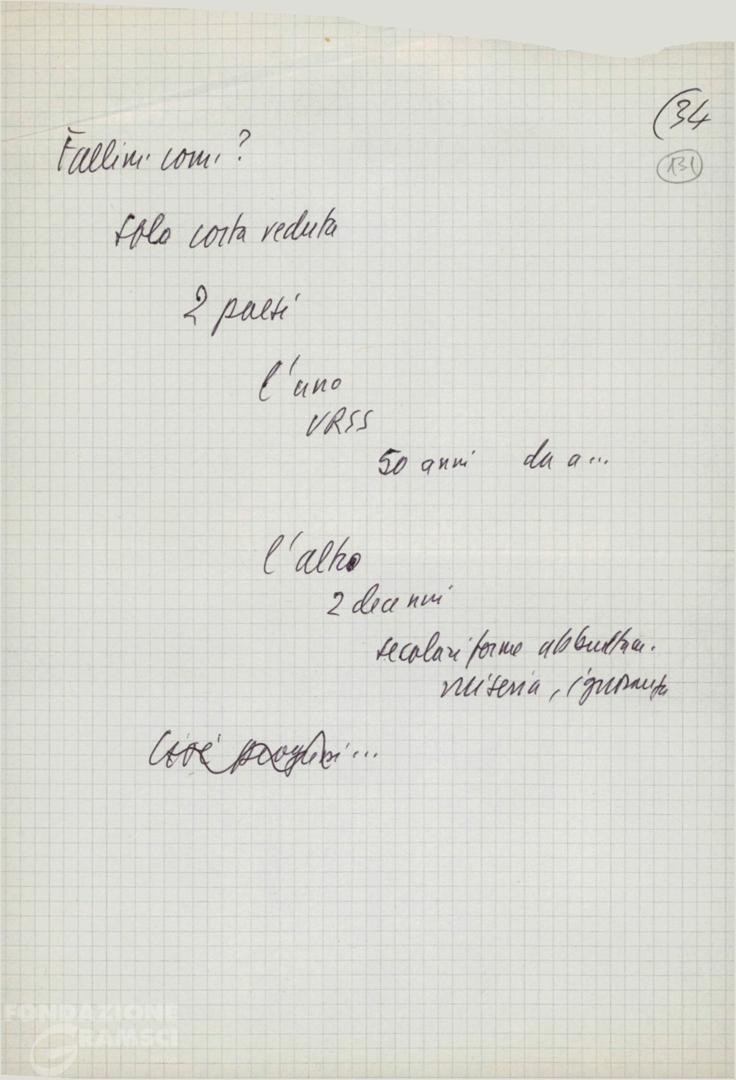 (34
131
Fallim. com.?
solo corta veduta
2 paesi
l'uno
URSS
50 anni da a...
l'altro
2 decenni
secolari forme abbrutim.
miseria, ignoranza
Cioè progressi...
FONDAZIONE
GRAMSCI